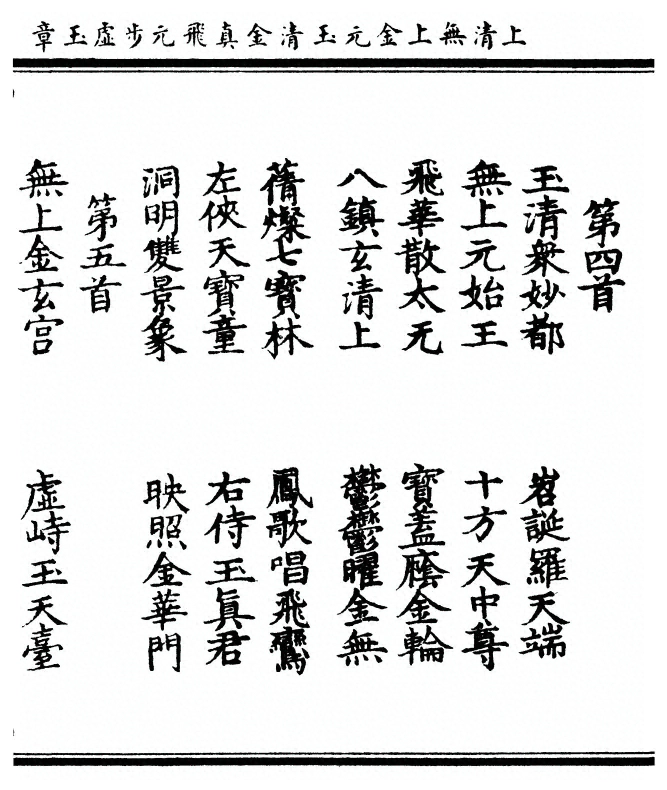 上清無上金元玉清金真飛元步虛玉章
第四首
玉清衆妙都　岧誕羅天端
無上元始王　十方天中尊
飛華散太无　寶蓋廕金輪
八鎮玄清上　鬱鬱曜金無
蒨燦七寶林　鳳歌唱飛鸞
左俠天寶童　右侍玉眞君
洞明雙景象　映照金華門
第五首
無上金玄宮　虛峙玉天臺